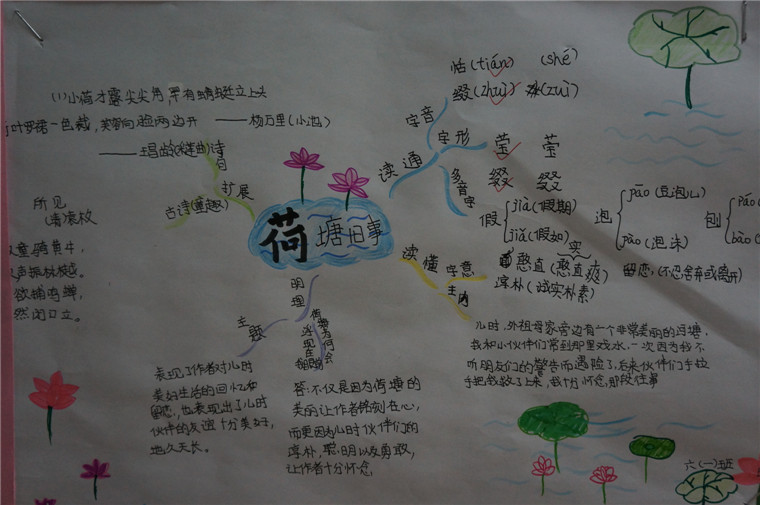 (1)小荷才露尖尖角,早有蜻蜓立上头
——杨万里(小池)
叶罗裙一色裁,芙蓉向脸两边开
——王昌龄
诗句
扩展
古诗(童趣)
所见
(清)袁枚
童骑黄牛,
声振林樾。
欲捕鸣蝉,
然闭口立。
荷塘旧事
读通
字音
恬(tián) (shé)
缀(zhuì) (zuì)
字形
莹 莹
缀 缀
多音字
假 jià(假期)
jiǎ(假如)
泡 pāo(豆泡儿)
pào(泡沫)
刨 páo(
bào(
读懂
字意
憨直(憨实直爽) 留恋(不忍舍弃或离开)
淳朴(诚实朴素)
主内
儿时,外祖母家旁边有一个非常美丽的河塘,
我和小伙伴们常到那里戏水,一次因为我不
听朋友们的警告而遇险了,后来伙伴们手拉
手把我救了上来,我十分怀念,那段往事
明理
主题
表现了作者对儿时
美好生活的回忆和
留恋,也表现出了儿时
伙伴的友谊十分美好,
地久天长。
答:不仅是因为荷塘的
美丽让作者铭刻在心,
而更因为儿时伙伴们的
淳朴,聪明以及勇敢,
让作者十分怀念,
六(一)班